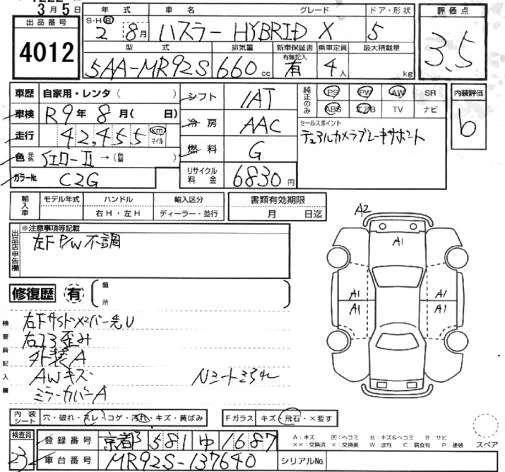 3月5日
出品番号
4012
年式 車名 グレード ドア・形状
S・H・R 2年 8月 ハスラー HYBRID X 5
型式 排気量 新車保証書 乗車定員 最大積載量
有無記入
5AA-MR92S 660cc 有 4人 kg
評価点
3.5
車歴 自家用・レンタ( )
車検 R9年8月( 日)
走行 42,455 km マイル
色 元色 イエローⅡ→(色替)
カラーNo. C2G
シフト 1AT
冷房 AAC
燃料 G
リサイクル料金 6830円
純正のみ PS PW AW SR
ABS エアB TV ナビ
セールスポイント
デュアルカメラブレーキサポート
内装評価
b
輸入車 モデル年式 ハンドル 輸入区分
右H・左H ディーラー・並行
書類有効期限
月 日迄
出品店申告欄
※注意事項等記載
左F P/W 不調
修復歴 有 箇所
検査員記入欄
左Fサイドメンバー先U
右コア歪み
外装A
AWキズ
ミラーカバーA
A2
A1
A1 A1
A1 A1
内装シート 穴・破れ・スレ・コゲ・汚れ・キズ・黄ばみ
Fガラス キズ・飛石・×要す
検査員
登録番号 京都 581 ゆ 1687
車台番号 MR92S-137640
シリアルNo.
A:キズ U:ヘコミ B:キズ&ヘコミ S:サビ
××:交換済 ×:要交換 W:波有 C:腐食有 P:塗装 G:
スペア